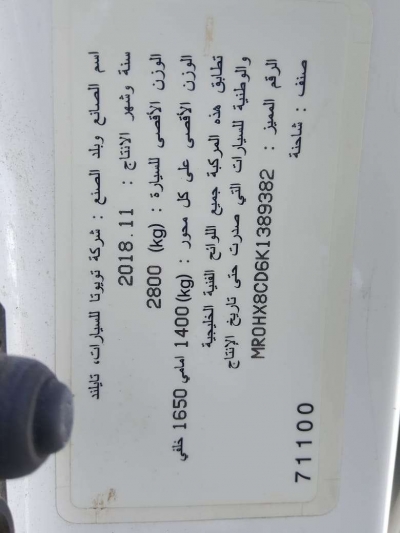 اسم الصانع وبلد الصنع : شركة تويوتا للسيارات، تايلند
سنة وشهر الانتاج : 2018.11
الوزن الأقصى للسيارة : 2800 (kg)
الوزن الأقصى على كل محور : 1400(kg) امامي 1650 خلفي
تطابق هذه المركبة جميع اللوائح الفنية الخليجية
والوطنية للسيارات التي صدرت حتى تاريخ الإنتاج
الرقم المميز : MR0HX8CD6K1389382
صنف : شاحنة
71100